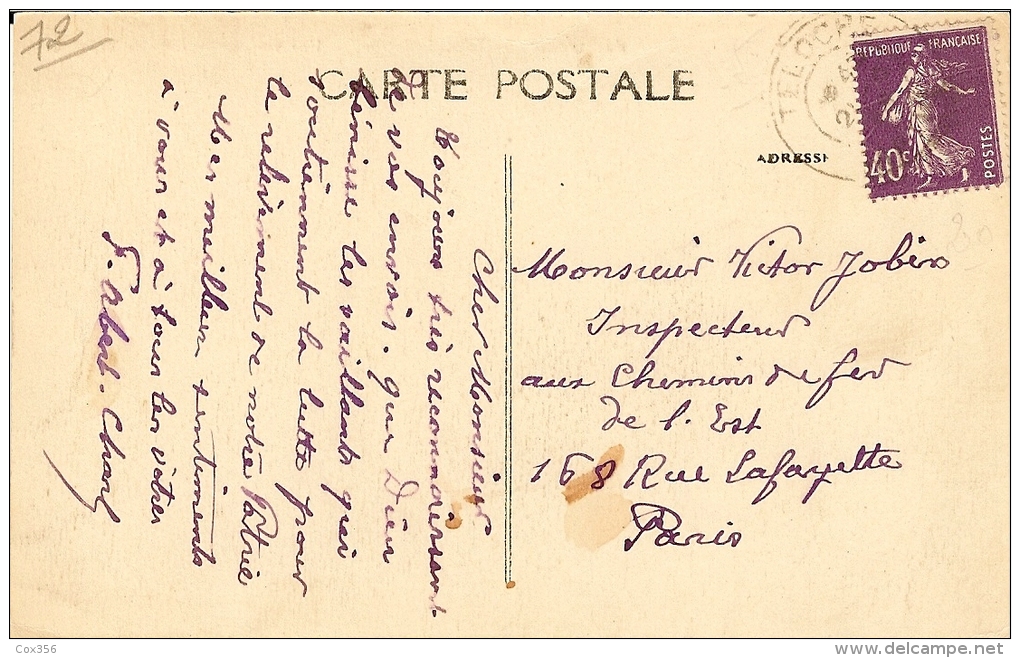 72
CARTE POSTALE
TELOCHE
REPUBLIQUE FRANÇAISE
40c
POSTES
ADRESSE
Cher Monsieur
Toujours très reconnaissant
de vos envois. que Dieu
bénisse les vaillants qui
soutiennent la lutte pour
le relèvement de notre Patrie
Mes meilleurs sentiments
à vous et à tous les vôtres
Monsieur Victor Jobin
Inspecteur
aux Chemins de fer
de l'Est
168 Rue Lafayette
Paris
Cox356
www.delcampe.net